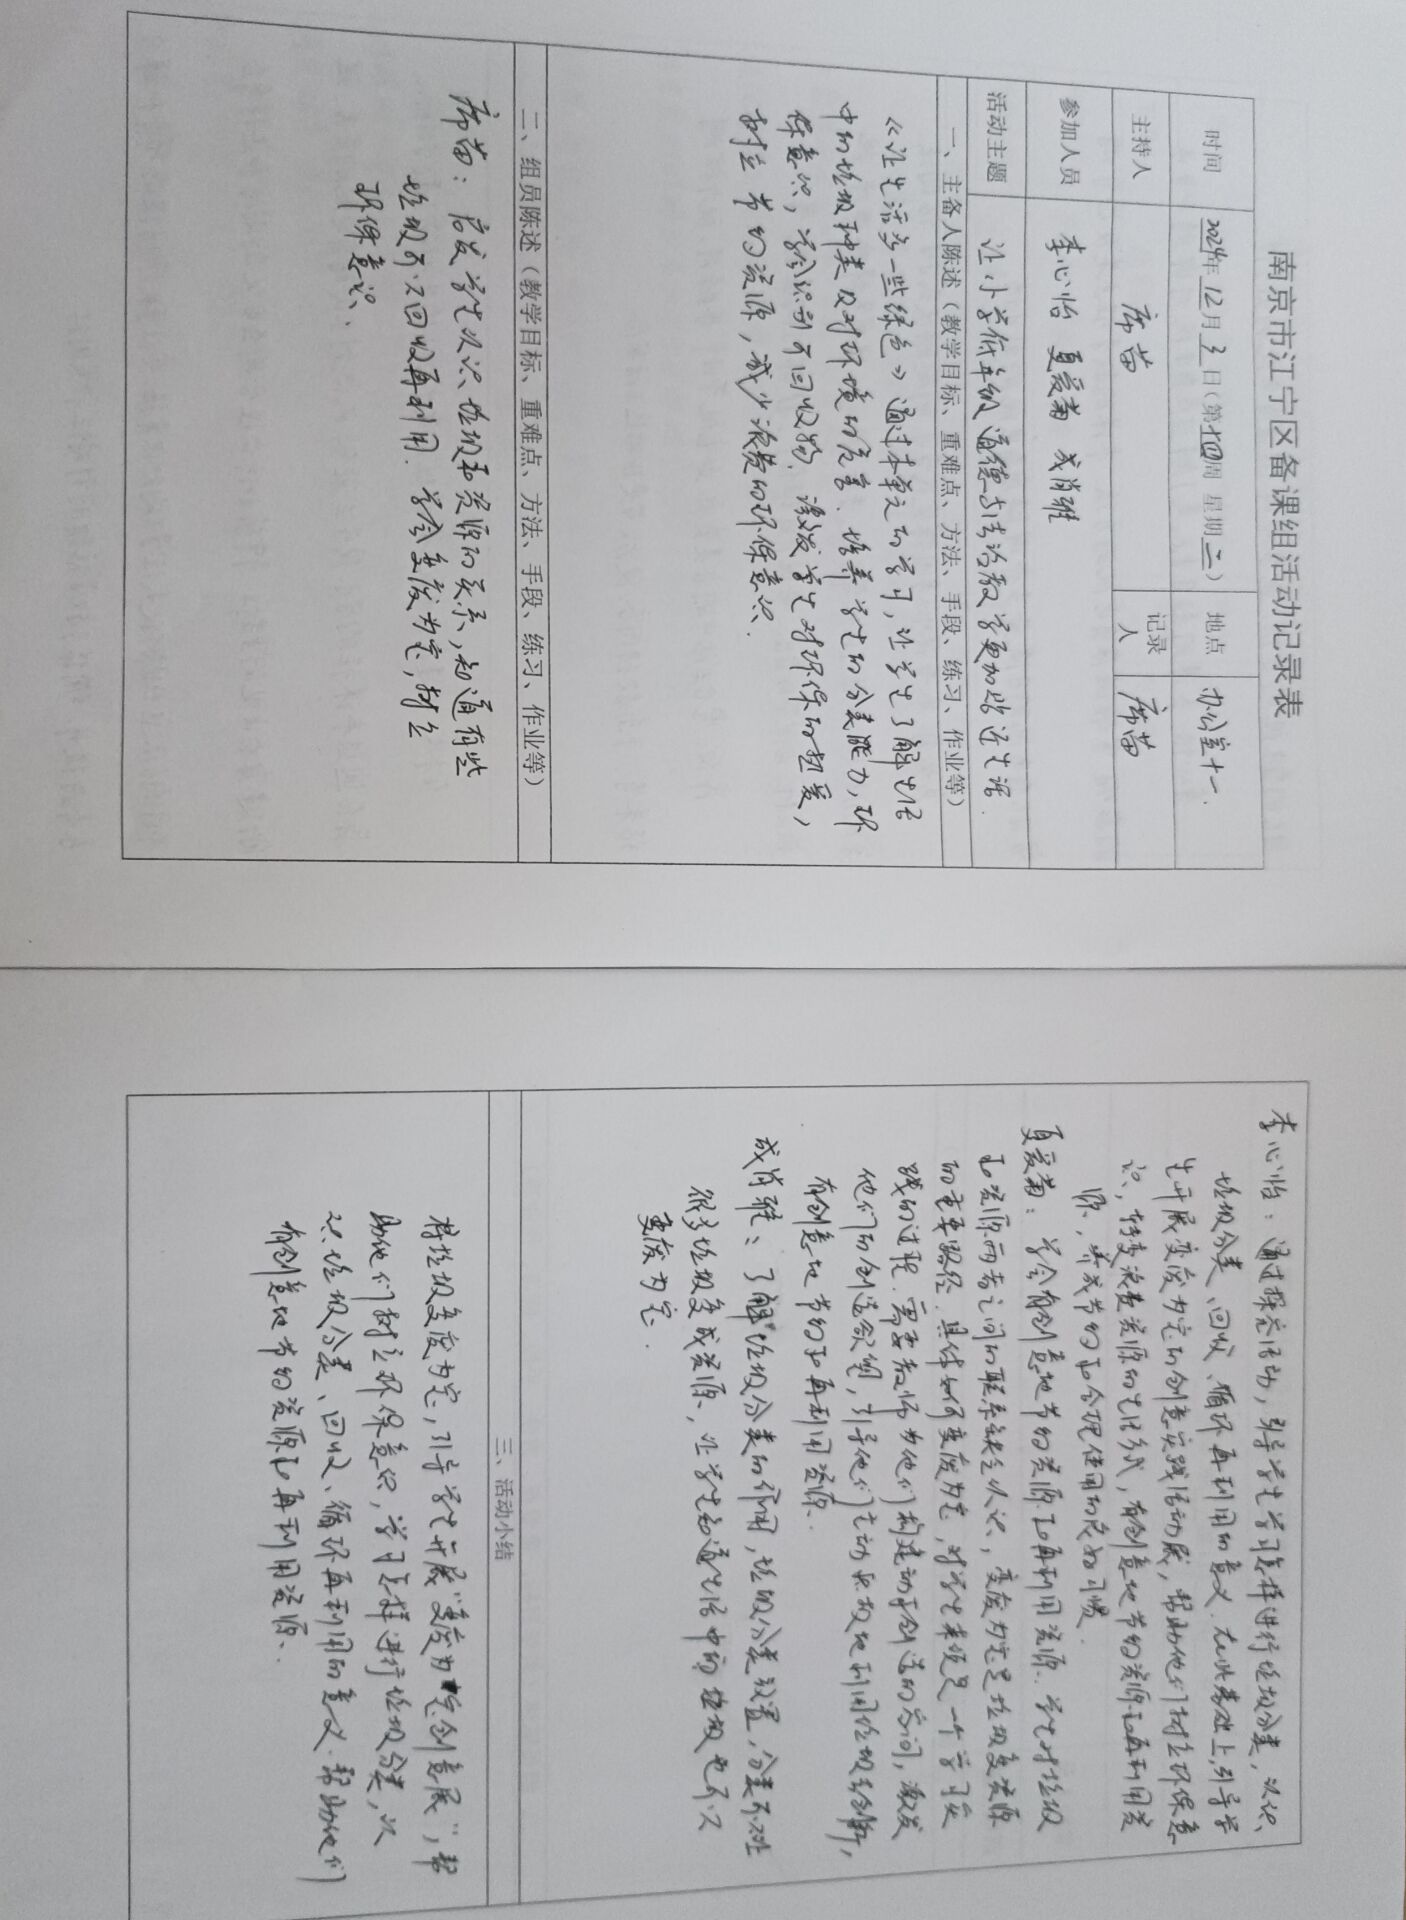 南京市江宁区备课组活动记录表
时间 2024年 12月 3日(第十四周 星期二) 地点 办公室十一.
主持人 席苗 记录人 席苗
参加人员 李心怡 夏爱菊 成肖雅
活动主题 让小学低年级道德与法治教学更加贴近生活.
一、主备人陈述(教学目标、重难点、方法、手段、练习、作业等)
《让生活多一些绿色》通过本单元的学习,让学生了解生活
中的垃圾种类及对环境的危害.培养学生的分类能力,环
保意识,学会识别可回收物.激发学生对环保的热爱,
树立节约资源,减少浪费的环保意识.
二、组员陈述(教学目标、重难点、方法、手段、练习、作业等)
席苗:启发学生认识垃圾和资源的关系,知道有些
垃圾可以回收再利用.学会变废为宝,树立
环保意识.
李心怡:通过探究活动,引导学生学习怎样进行垃圾分类,认识
垃圾分类、回收、循环再利用的意义.在此基础上,引导学
生开展变废为宝的创意实践活动展,帮助他们树立环保意
识,转变浪费资源的生活方式,有创意地节约资源和再利用资
源,养成节约和合理使用的良好习惯.
夏爱菊:学会有创意地节约资源和再利用资源.学生对垃圾
和资源两者之间的联系缺乏认识,变废为宝是垃圾变资源
的重要路径.具体如何变废为宝,对学生来说是一个学习实
践的过程.需要教师为他们构建动手创造的空间,激发
他们的创造欲望,引导他们主动积极地利用垃圾去创新,
有创意地节约和再利用资源.
成肖雅:了解垃圾分类的作用,垃圾分类放置,分类可以让
很多垃圾变成资源,让学生知道生活中的垃圾也可以
变废为宝.
三、活动小结
将垃圾变废为宝,引导学生开展“变废为宝创意展”,帮
助他们树立环保意识,学习怎样进行垃圾分类,认
识垃圾分类、回收、循环再利用的意义.帮助他们
有创意地节约资源和再利用资源.